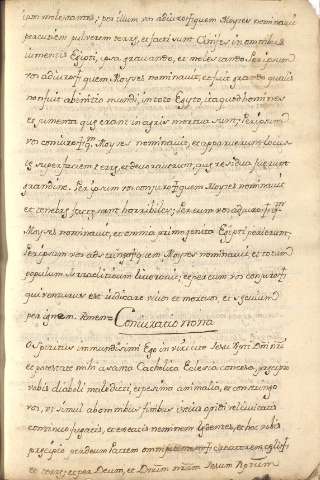 ipsos molestantes; per illum vos adiuro, quem Moyses nominavit
percutiens pulverem terræ, et facti sunt Cinifes in omnibus
iumentis Egipti, ipsa gravando, et molestando Per ipsum
vos adiuro quem Moyses nominavit, et fuit grando qualis
non fuit ab initio mundi, in toto Egypto, ita quod homines
et iumenta que erant in agris mortua sunt; Per ipsum
vos coniuro qm Moyses nominavit, et apparuerunt locus-
te super faciem terre, et devoraverunt, que residua fuerunt
grandine. Per ipsum vos conjuro quem Moyses nominavit
et tenebre facte sunt horribiles; Per eum vos adjuro qm
Moyses nominavit, et omnia primogenita Egipti perierunt;
Per ipsum vos quem Moyses nominavit, et totum
populum Israeliticum liveravit; et per eum vos conjuro
qui venturus est iudicare vivos et mortuos, et seculum
per ignem. Amen=
Coniuratio nona
O Spiritus inmundissimi Ego in virtute Jesu Dni nri
et potestate mihi a Santa Catholica Eclesia concessa, precipio
vobis diaboli maledicti, et pesima animalia, et constringo
vos, ut simul ab omnibus finibus
continuo fugiatis, et neminem ledentes, et hoc vobis
precipio per deum Patrem omnipotentem creatorem celi
et terre; et per Deum, et Dnum nrum Iesum